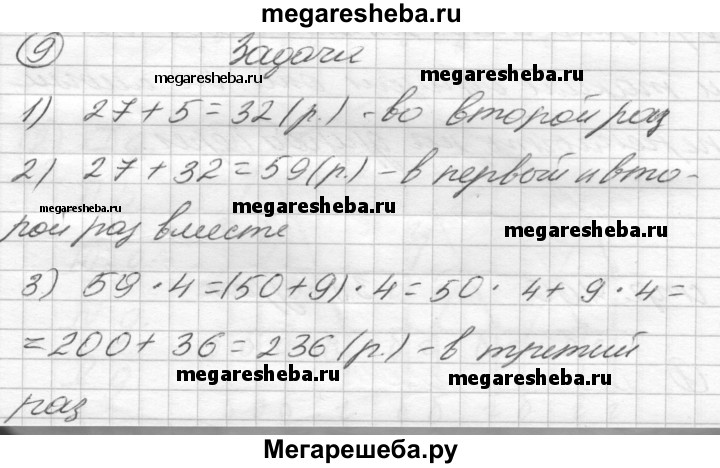 megaresheba.ru
9 Задачи
megaresheba.ru
megaresheba.ru
1) 27 + 5 = 32 (р.) - во второй раз
2) 27 + 32 = 59 (р.) - в первый и вто-
megaresheba.ru
megaresheba.ru
рой раз вместе
megaresheba.ru
3) 59 · 4 = (50 + 9) · 4 = 50 · 4 + 9 · 4 =
= 200 + 36 = 236 (р.) - в третий
megaresheba.ru
megaresheba.ru
раз
Мегарешеба.ру